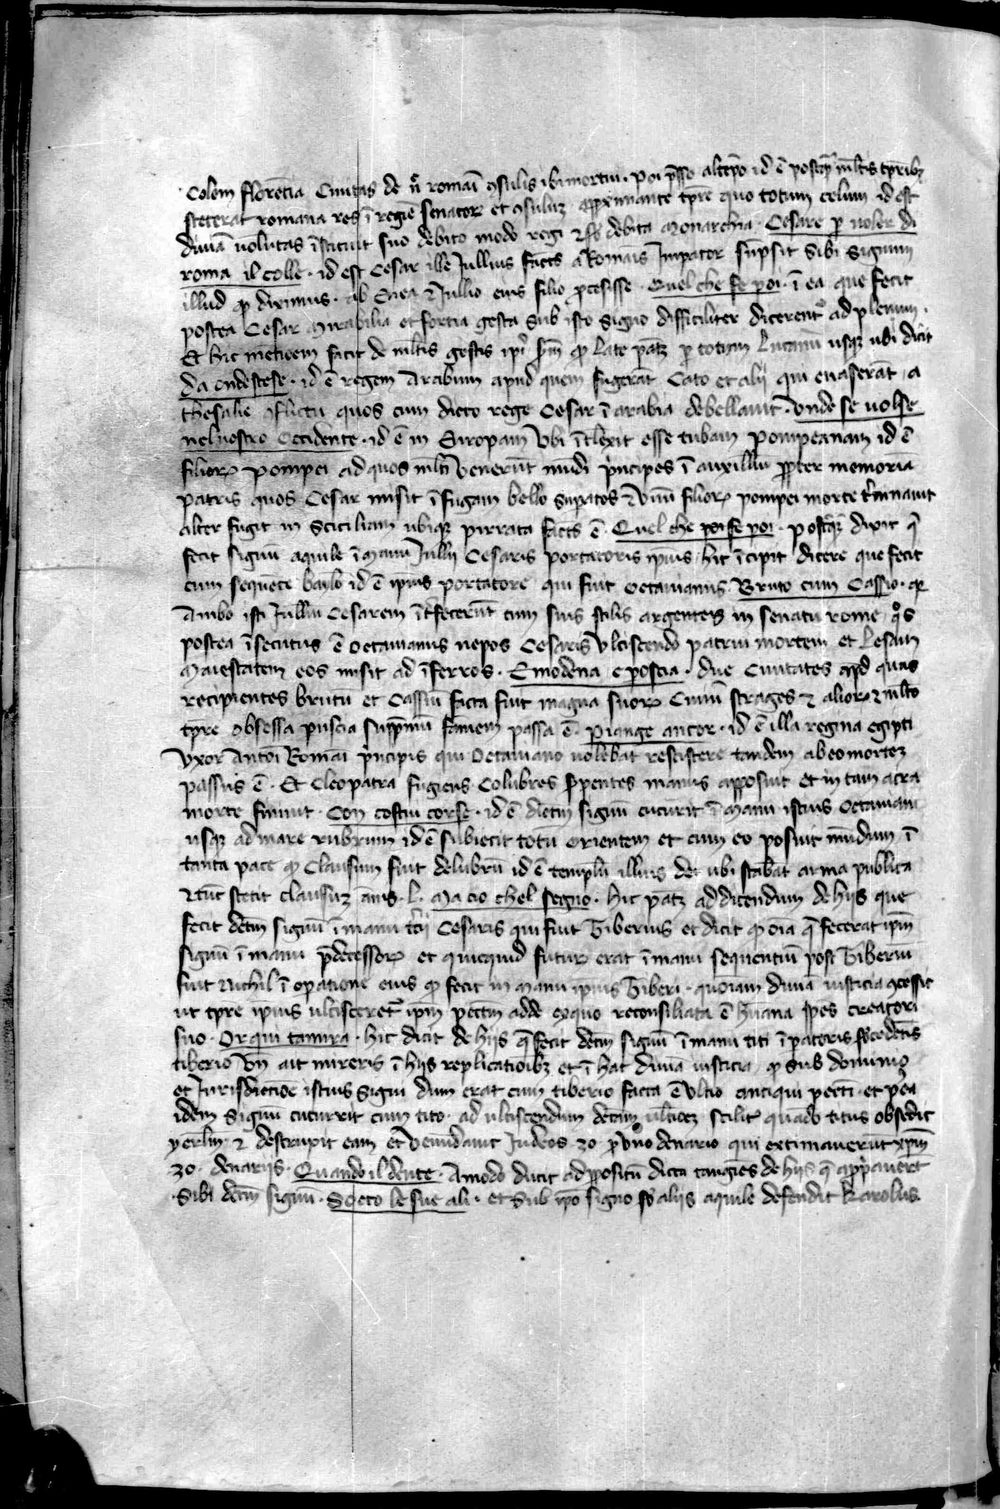 Colem florētia Ciuitas de nr̄i romāi ꝯsulis ibi mortui · Poi pͤsso al tēpo id ē postqͣ ml̄tis tꝑib⁊
steterat romana res ī regiē senatoꝝ et ꝯsuluꝫ appximante tꝑe quo totum celum id est
diuīa uolūtas īstituit suo debito modo regi ⁊ sb debita Monarchia · Cesare ꝑ uoler di
roma il colle · id est Cesar ille Jullius factꝰ a Romāis Imꝑator sūpsit sibi signum
illud qͩ diximus · ab Enea ⁊ Jullio eius filio ꝓcesisse · Quel che fe poi · ī ea que fecit
postea Cesar Mirabilia et fortia gesta sub isto signo difficiliter dicerent᷑ ad plenum ·
Et hic mētioem facit de ml̄tis gestis ip̄iꝰ qͩ late patꝫ ꝑ totum Lucanū usqꝫ ubi dicit
da onde stese · id ē regem Arabum apud quem fugerāt Cato et alij qui euaserāt a
thesalie ꝯflictu quos cum dicto rege Cesar ī arabia debellauit · Onde se uolse
nel uostro Occidente · id ē in Europam Vbi ītlexit esse tubam pompeanam id ē
filioꝝ Pompei ad quos ml̄ti Venerūt mūdi pͥncipes ī auxilliū ꝓpter memoria
patris quos Cesar misit ī fugam bello suꝑatos ⁊ Vnū filioꝝ pompei morte tͥminauit
alter fugit in Sciciliam ubiqꝫ pirrata factꝰ ē · Quel che poi fe poi · Postqͣ dixit qͤ
fecit signū aquile ī manu Jullij Cesaris portatoris ipius · hic īcipit dicere que fecit
cum sequēte baylo id ē ipius portatore qui fuit Octauianus · Bruto cum Cassio · qꝛ
Ambo isti Julliū Cesarem īt̄fecerūt cum suis stilis argenteis in senatu rome qͦs
postea īsecutus ē Octauianus nepos Cesaris Vlciscendo patrui mortem et Lesam
Maiestatem eos misit ad īferros · E modena e poscia · due Ciuitates apd quas
recipientes brutū et Cassiū facta fuit magna suoꝝ Ciuiū strages ⁊ alioꝝ ⁊ ml̄to
tꝑe obsessa pusia supͤmū famem passa ē · Piange ancor · id ē illa regina Egipti
Vxor Antoi Romāi pͥncipis qui Octauiano uolebat resistere tandem ab eo mortez
passus ē · Et Cleopatra fugiens · Colubres sꝑpentes manus apposuit et in tam acra
morte finiuit · Con costui corse · id ē dictm signū cucurit ī manu istius Octauiani
usqꝫ ad mare rubrum id ē subiecit totū Orientem et cum eo posuit mūdum ī
tanta pace qͩ clausum fuit delubrū id ē templū illius dei ubi stabāt arma publica
⁊ tūc stetit clausuꝫ ānis · L · Ma cio chel segno · hic patꝫ ad dicendum de hijs que
fecit dc̄m signū ī manu tcij Cesaris qui fuit Tiberius et dicit qͩ oīa qͤ fecerat ipm
signū ī manu pͤdecessoꝝ et quicquid futuꝝ erat ī manu sequentiū post Tiberiū
fuit Nichil ī oꝑatione eius qͩ fecit in manu ipius Tiberi · quoniam diuīa iusticia ꝯcessit
ut tꝑe ipius ulcisceret᷑ ipm pcctm ade ex quo reconsiliata ē hūana spēs creatori
suo · Or qui tamira · hic dicit de hijs qͤ fecit dc̄m signū ī manu titi īꝑatoris sb̄cedētis
tiberio Vn̄ ait mireris ī hijs replicatioib⁊ et ī hac diuīa iusticia qͩ sub dominio
et Jurisdictioe istius signi dum erat cum tiberio facta ē Vltio antiqui pccti · et pea
idem signū cucurrit cum tito · ad ulciscendum dc̄am ultioeꝫ scilicꝫ quādo titus obsedit
yerl̄m ⁊ destruxit eam et Venūdauit Judeos · 30 · ꝓ Vno denario qui extimauerūt xp̄m
30 · denarijs · Quando il dente · Amodo ducit ad ꝓpositū dicta tangēs de hijs qͤ apꝓpauerūt
sibi dc̄m signū · Socto le sue ali · et sub ip̄o signo sb̄ aliis aquile defendit Karolus